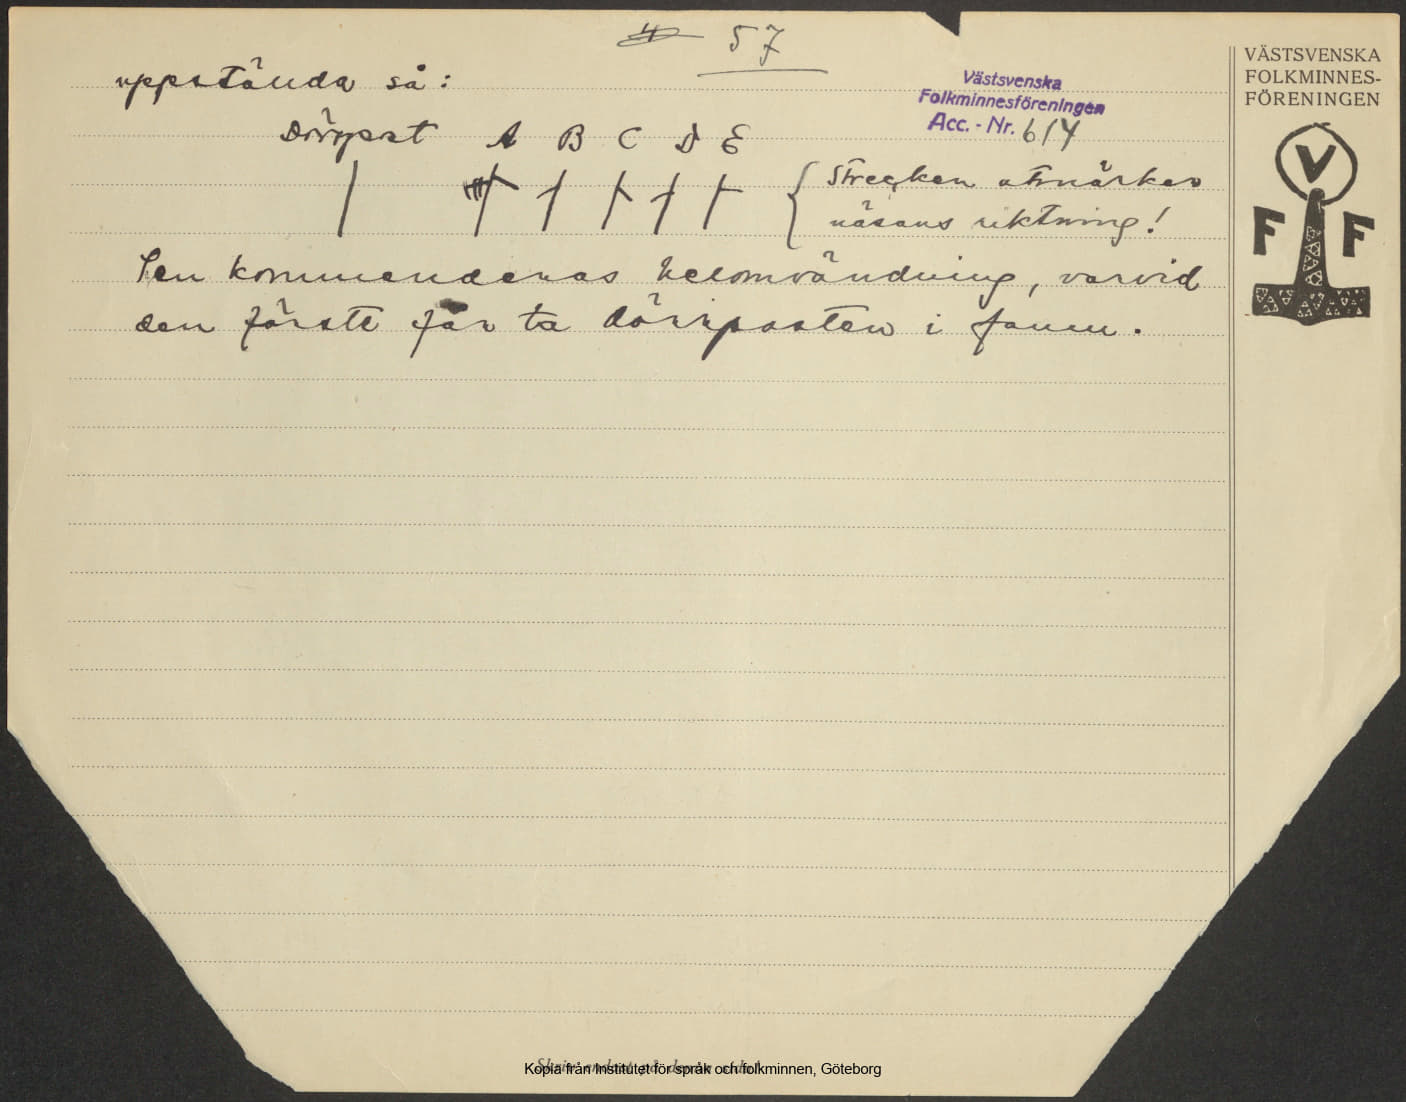 57
uppstända så:
Dörrpost A B C D E
Strecken utmärker
näsans riktning!
Sen kommenderas helomvändning, varvid
den förste får ta dörrposten i famn.
Västsvenska
Folkminnesföreningen
Acc. - Nr. 614
VÄSTSVENSKA
FOLKMINNES-
FÖRENINGEN
V
F F
Skriv endast på denna sida!
Kopia från Institutet för språk och folkminnen, Göteborg